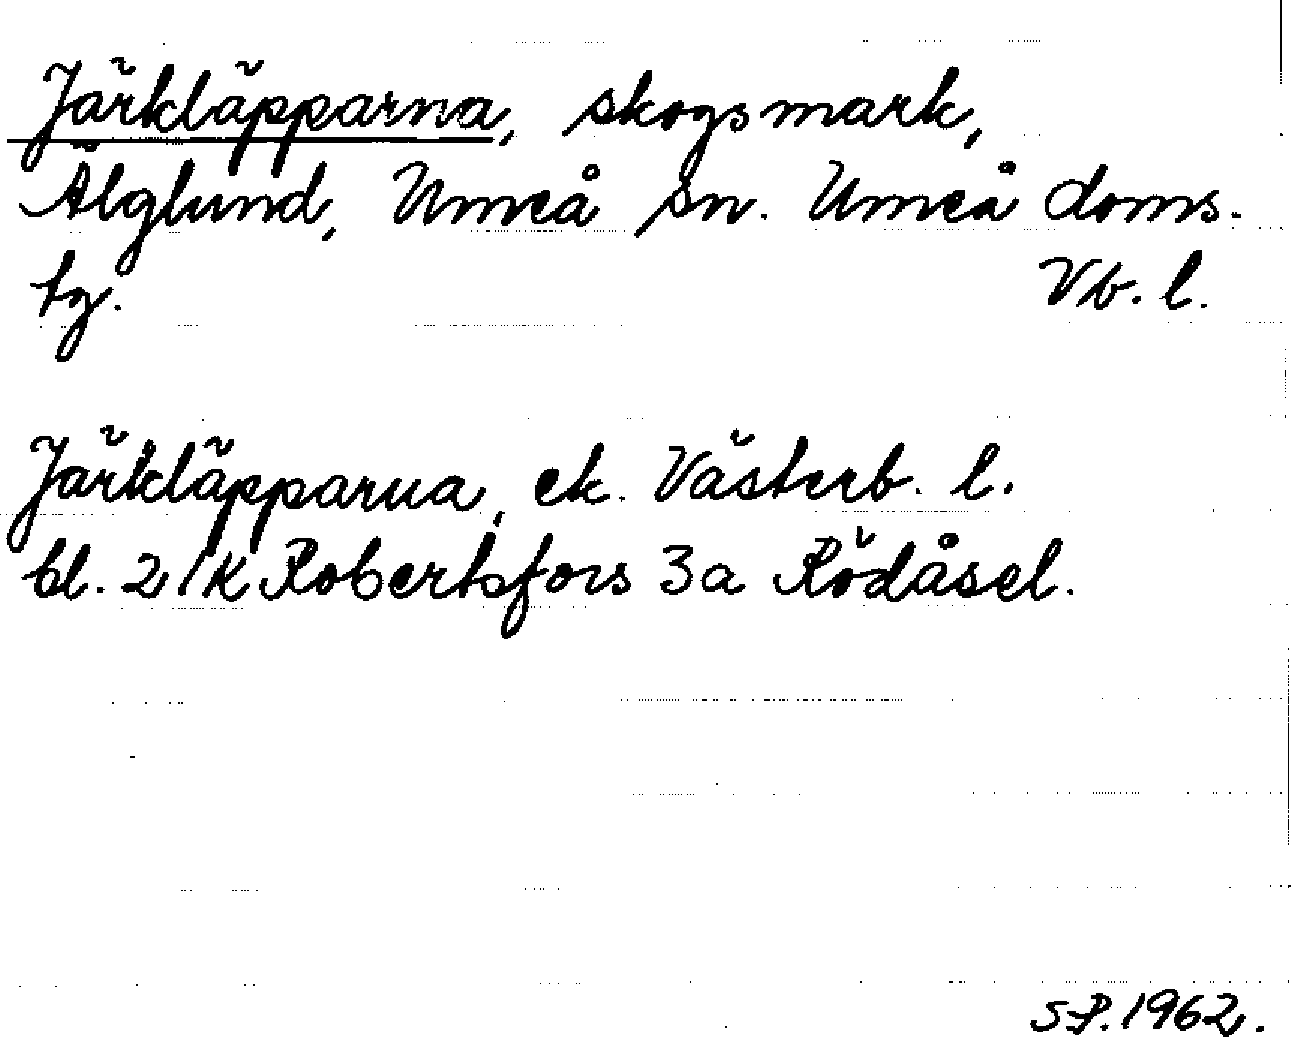 Järkläpparna, skogsmark,
Älglund, Umeå sn. Umeå doms.
tg. Vb. l.
Järkläpparna, ek. Västerb. l.
bl. 21K Robertsfors 3a Rödåsel.
S.P. 1962.